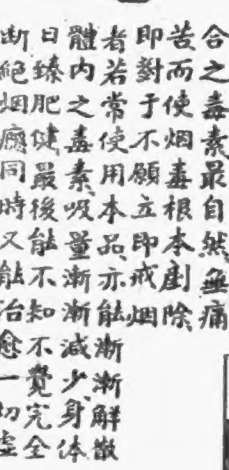 合之毒素最自然無痛
苦而使烟毒根本剷除
即對于不願立即戒烟
者若常使用本品亦能漸漸解散
體內之毒素吸量漸漸減少身体
日臻肥健最後能不知不覺完全
斷絕烟癮同時又能治愈一切虛